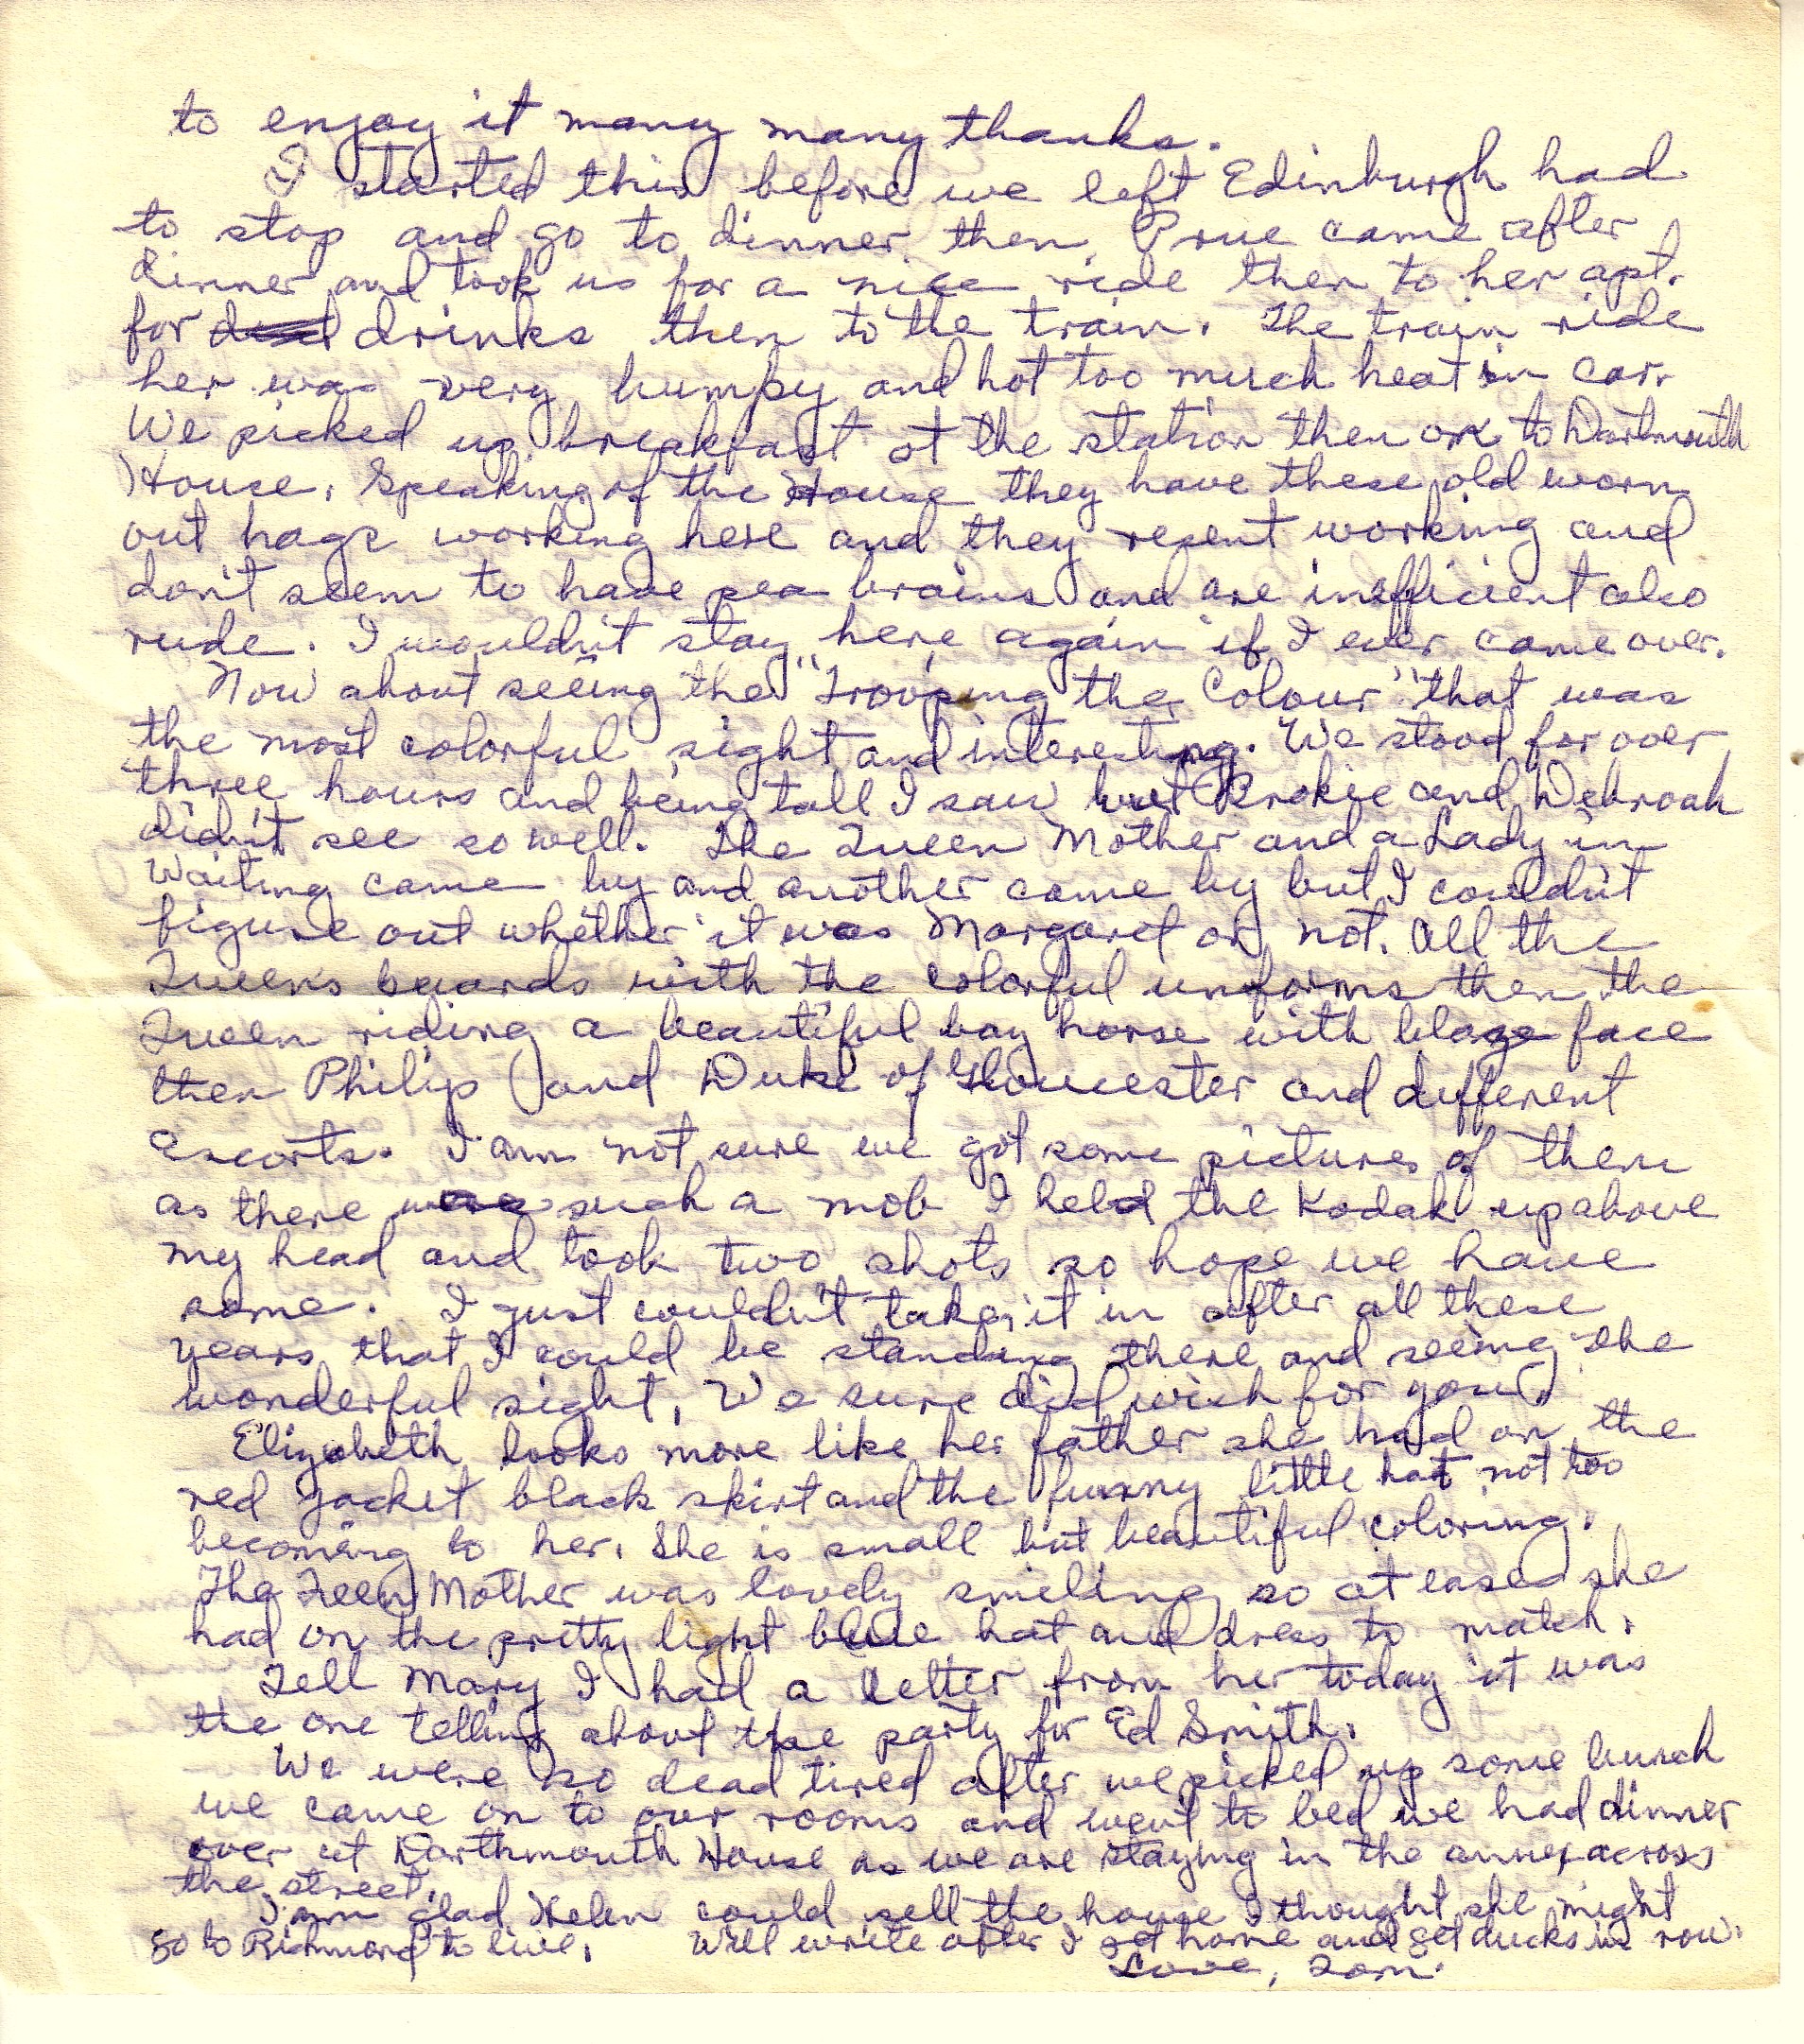 to enjoy it many many thanks.
I started this before we left Edinburgh had
to stop and go to dinner then Prue came after
dinner and took us for a nice ride then to her apt.
for drinks then to the train. The train ride
her was very bumpy and hot too much heat in car.
We picked up breakfast at the station then on to Dartmouth
House. Speaking of the House they have these old worn
out hags working here and they resent working and
don't seem to have pea brains and are inefficient also
rude. I wouldn't stay here again if I ever came over.
Now about seeing the "Trooping the Colour" that was
the most colorful sight and interesting. We stood for over
three hours and being tall I saw but Brokie and Debroah
didn't see so well. The Queen Mother and a Lady in
Waiting came by and another came by but I couldn't
figure out whether it was Margaret or not. All the
Queen's guards with the colorful uniforms then the
Queen riding a beautiful bay horse with blaze face
then Philip and Duke of Gloucester and different
escorts. I am not sure we got some pictures of them
as there was such a mob I held the Kodak up above
my head and took two shots so hope we have
some. I just couldn't take it in after all these
years that I could be standing there and seeing the
wonderful sight. We sure did wish for you.
Elizabeth looks more like her father she had on the
red jacket black skirt and the funny little hat not too
becoming to her. She is small but beautiful coloring.
The Queen Mother was lovely smiling so at ease she
had on the pretty light blue hat and dress to match.
Tell Mary I had a letter from her today it was
the one telling about the party for Ed Smith.
We were so dead tired after we picked up some lunch
we came on to our rooms and went to bed we had dinner
over at Darthmouth House as we are staying in the annex across
the street.
I am glad Helen could sell the house I thought she might
go to Richmond to live. Will write after I get home and get ducks in row.
Love, Tom.